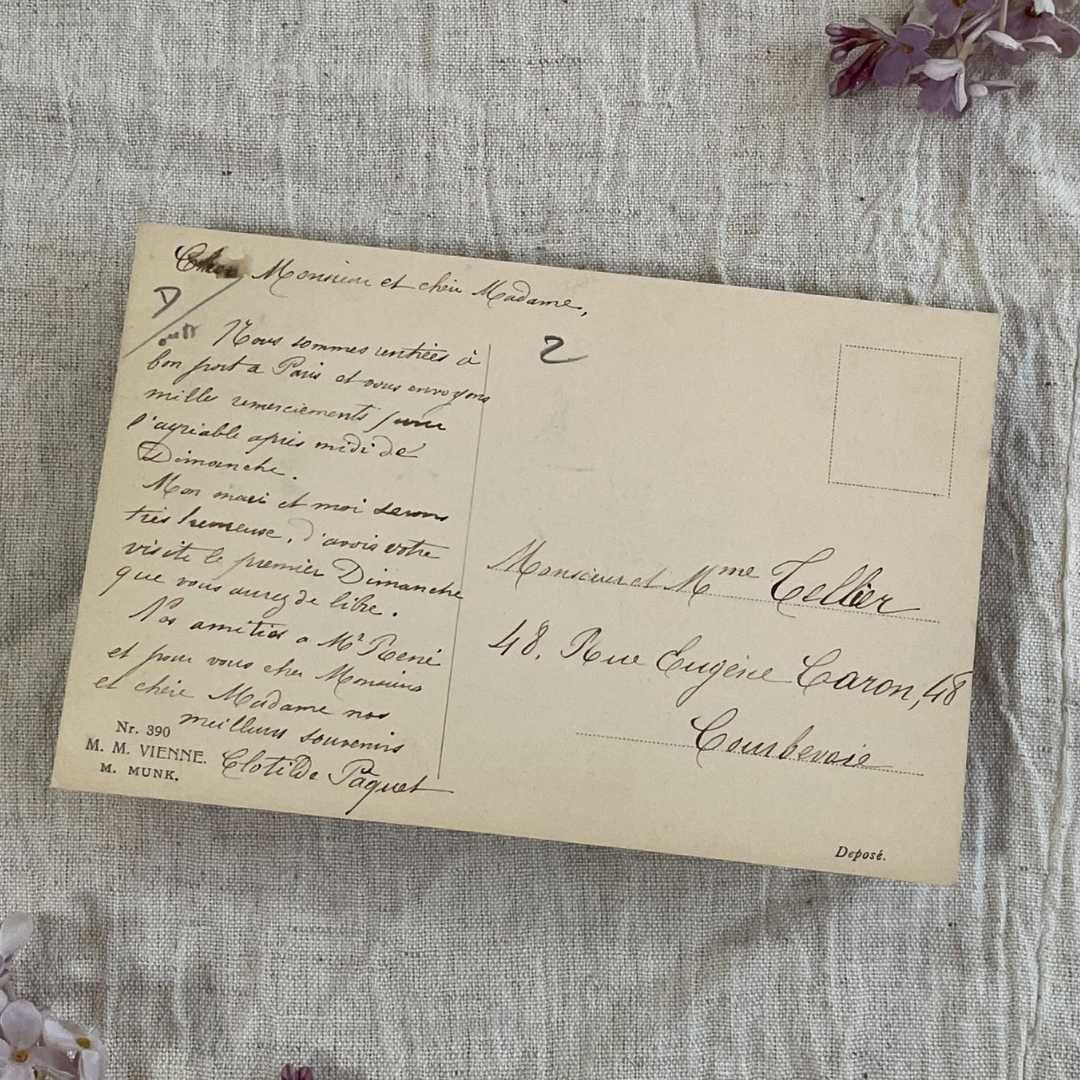 Cher Monsieur et chère Madame,
Nous sommes rentrées à
bon port a Paris et vous envoyons
mille remerciements pour
l'agréable après midi de
Dimanche.
Mon mari et moi serons
très heureuse, d'avoir votre
visite le premier Dimanche
que vous aurez de libre.
Nos amitiés a Mr René
et pour vous cher Monsieur
et chère Madame nos
meilleurs souvenirs
Clotilde Pâquet
Nr. 390
M. M. VIENNE.
M. MUNK.
2
Monsieur et Mme Tellier
48, Rue Eugène Caron, 48
Courbevoie
Deposé.